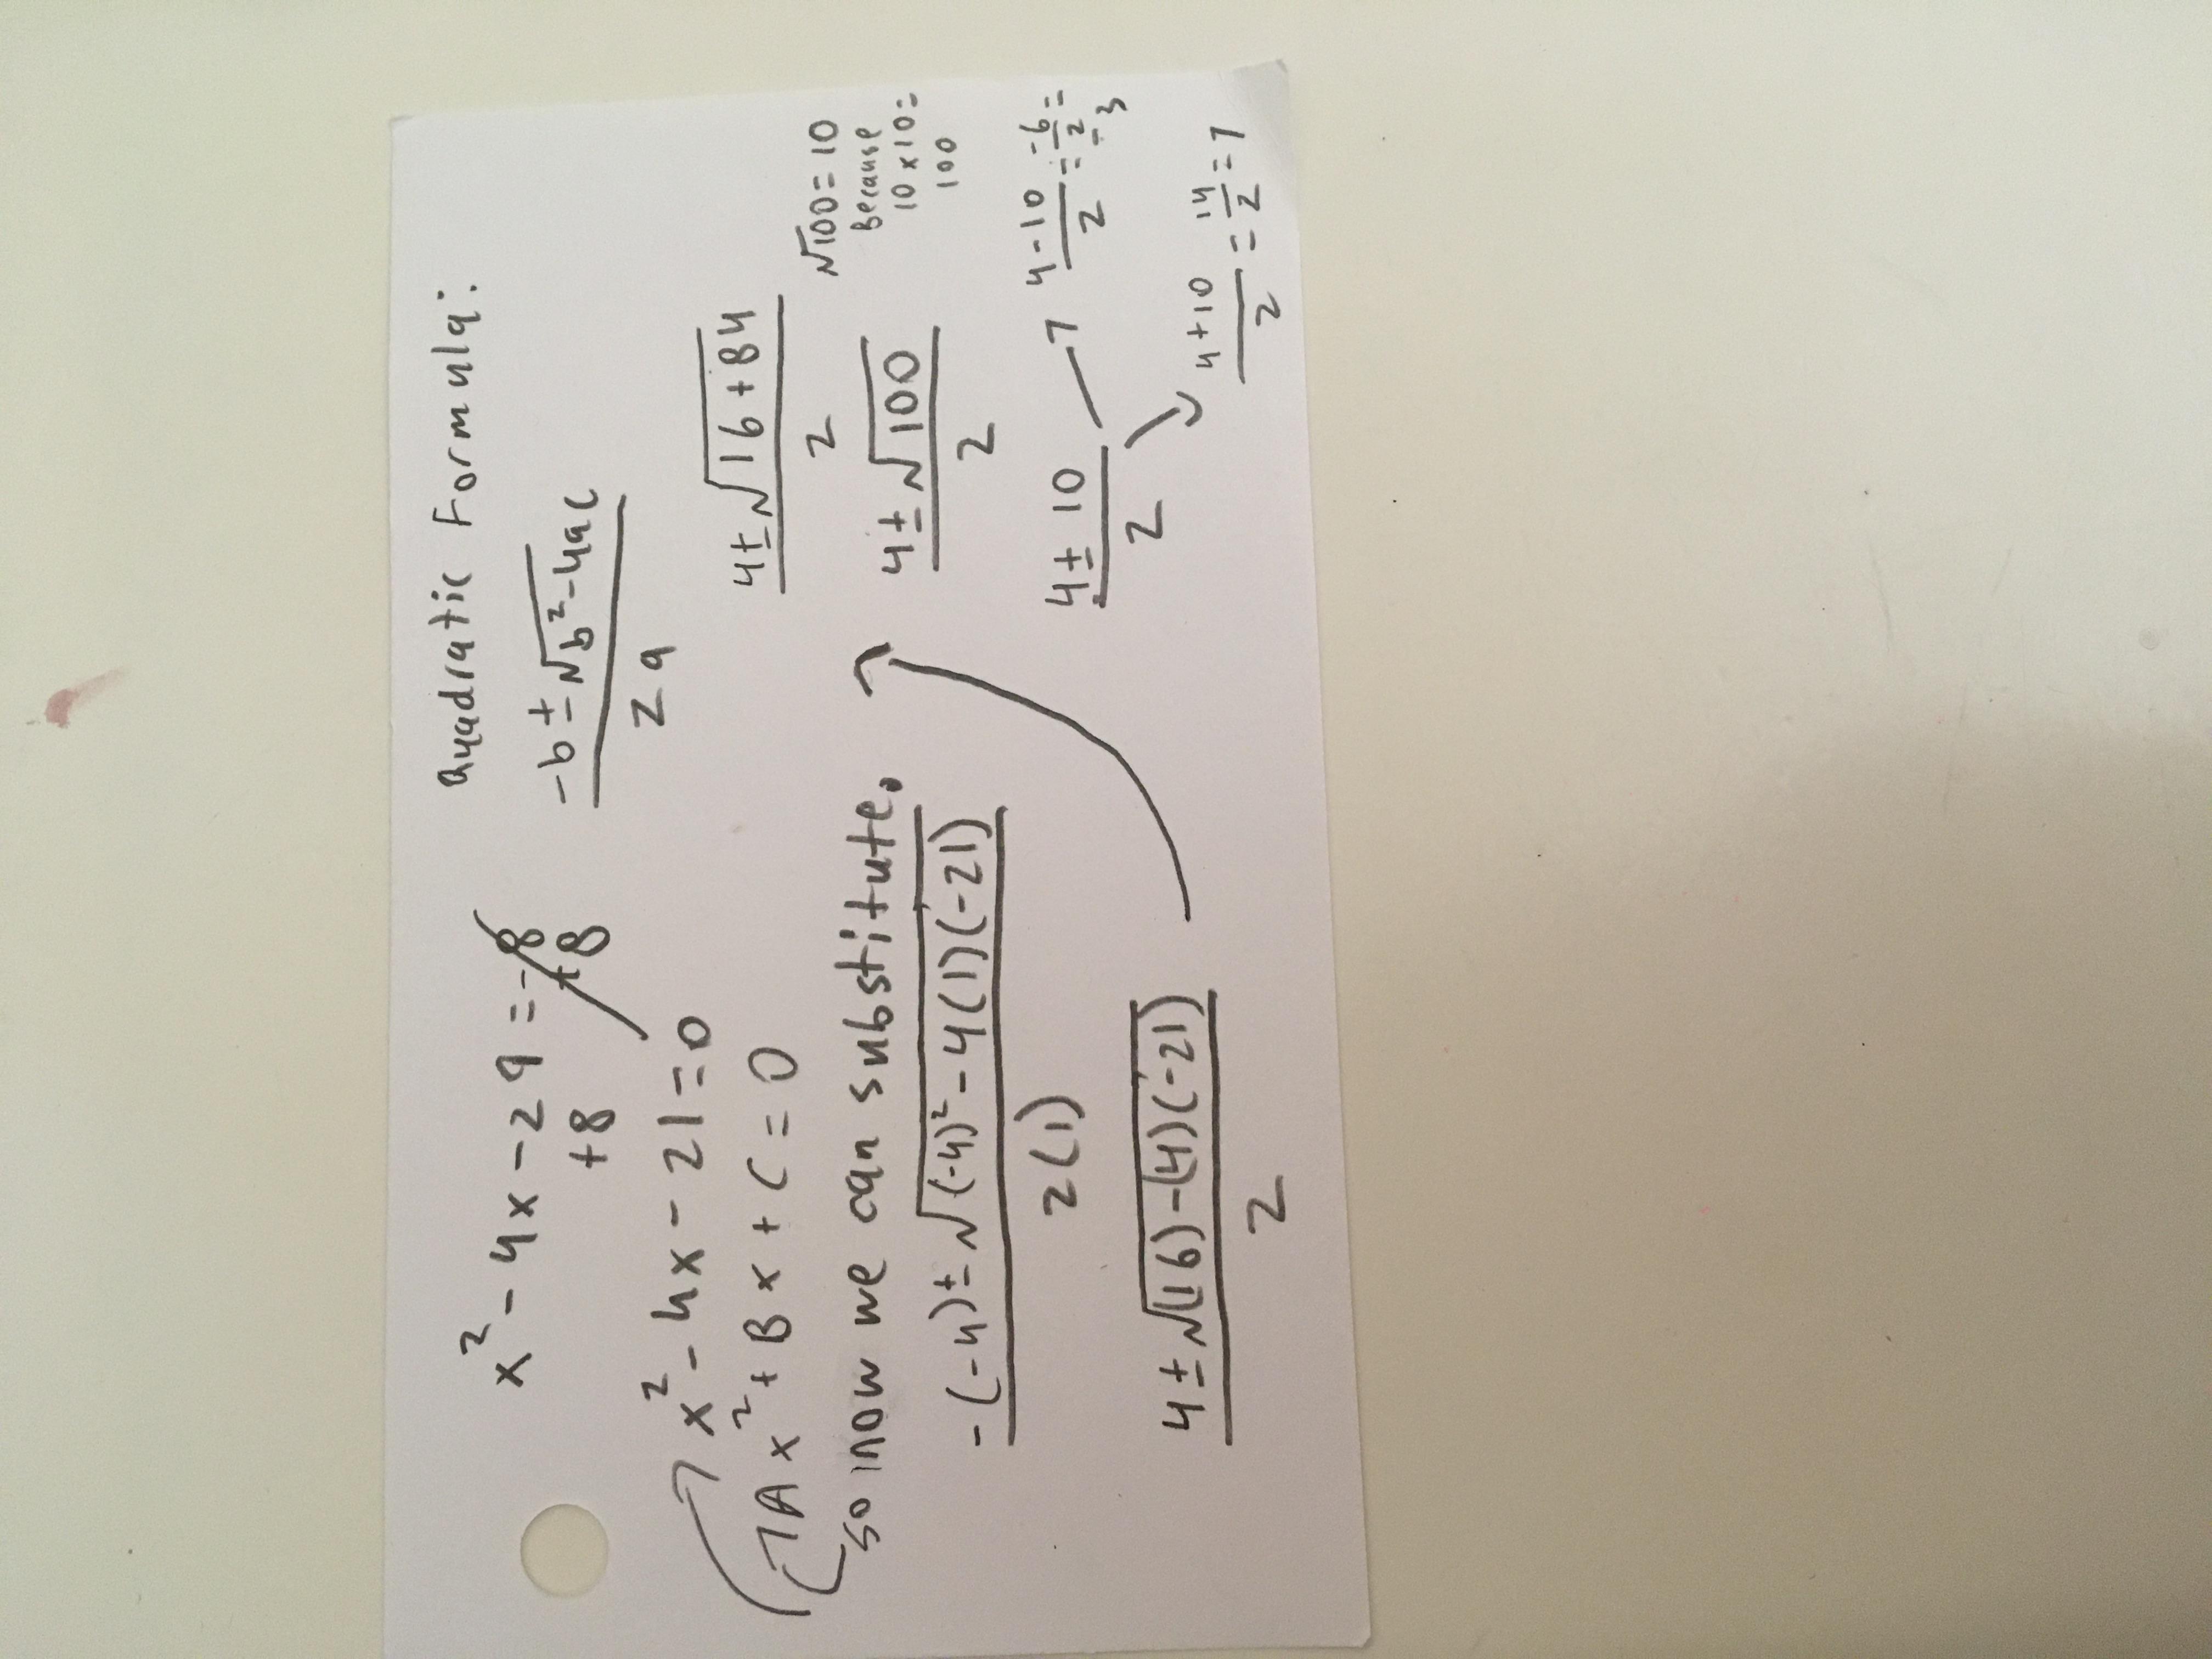 x² - 4x - 29 = -8
+8 +8
x² - 4x - 21 = 0
Ax² + Bx + C = 0
so now we can substitute.
-(-4) ± √(-4)² - 4(1)(-21)
2(1)
4 ± √(16) - (4)(-21)
2
Quadratic Formula:
-b ± √b² - 4ac
2a
4 ± √16 + 84
2
4 ± √100
2
√100 = 10
Because
10 x 10 =
100
4 ± 10
2
4 - 10 = -6 =
2 2
-3
4 + 10 = 14 = 7
2 2